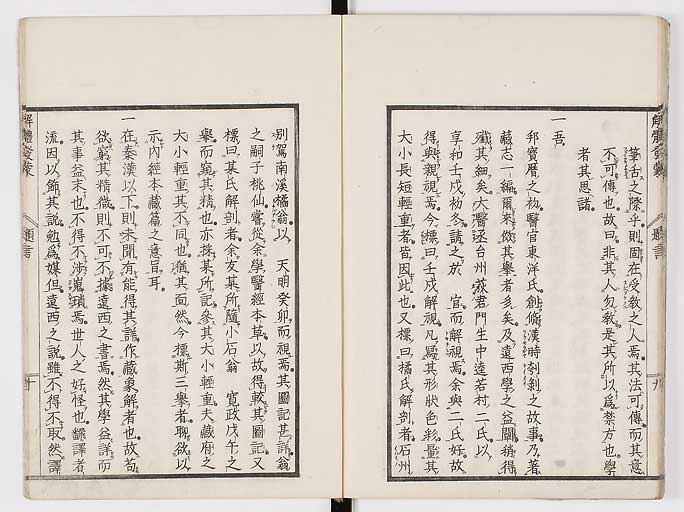 解體發蒙
題言
九
筆舌之際乎則固在受教之人焉其法可傳而其意
不可傳也故曰非其人勿教是其所以爲禁方也學
者其思諸
一吾
邦寶曆之初醫官東洋氏創脩漢時刳剝之故事乃著
藏志一編爾來倣其擧者多矣及遠西學之益闢稍得
殫其細矣大醫丞台州荻君門生中遠若村二氏以
享和壬戌初冬請之於 官而解視焉余與二氏好故
得與親視焉今標曰壬戌解視凡厥其形狀色稱量其
大小長短輕重者皆因此也又標曰橘氏解剖者石州
別駕南溪橘翁以 天明癸卯而視焉其圖記甚詳翁
之嗣子桃仙嘗從余學醫經本草以故得較其圖記又
標曰某氏解剖者余友某所隨小石翁 寬政戊午之
擧而窺其精也亦採某所記參其大小輕重夫藏府之
大小輕重其不同也猶其面然今標斯三擧者聊欲以
示內經本藏篇之意耳
一在秦漢以下則未聞有能得其詳作藏象解者也故苟
欲窮其精微則不可不據遠西之書焉然其學益詳而
其事益末也不得不涉瑣焉世人之好怪也飜譯者
流因以飾其說勉爲媒但遠西之說雖不得不取然譯
解體發蒙
題言
十